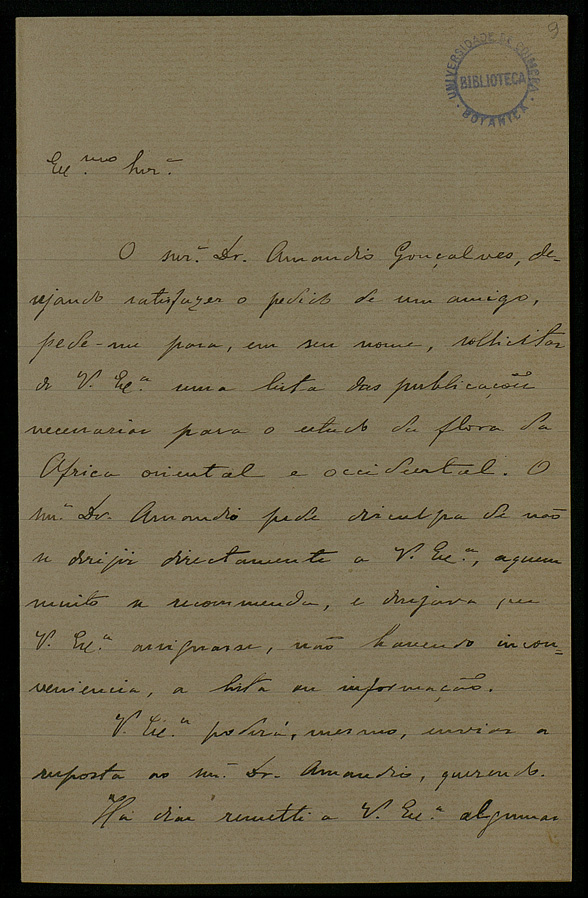 9
UNIVERSIDADE DE COIMBRA
BIBLIOTECA
BOTANICA
Ex.mo Snr.
O snr. Dr. Amandio Gonçalves, de-
sejando satisfazer o pedido de um amigo,
pede-me para, em seu nome, sollicitar
de V. Ex.a uma lista das publicações
necessarias para o estudo da flora da
Africa oriental e occidental. O
snr. Dr. Amandio pede disculpa de não
se dirijir directamente a V. Ex.a, a quem
muito se recommenda, e desejava que
V. Ex.a assignasse, não havendo incon=
veniencia, a lista ou informação.
V. Ex.a poderá, mesmo, enviar a
resposta ao snr. Dr. Amandio, querendo.
Ha dias remetti a V. Ex.a algumas